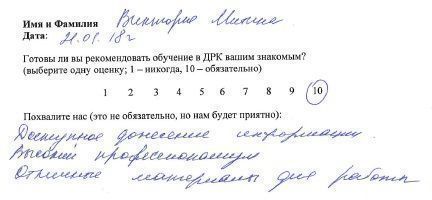 Имя и Фамилия Виктория Мишина
Дата: 21.01.18г
Готовы ли вы рекомендовать обучение в ДРК вашим знакомым?
(выберите одну оценку; 1 – никогда, 10 – обязательно)
1 2 3 4 5 6 7 8 9 10
Похвалите нас (это не обязательно, но нам будет приятно):
Доступное донесение информации
Высокий профессионализм
Отличные материалы для работы